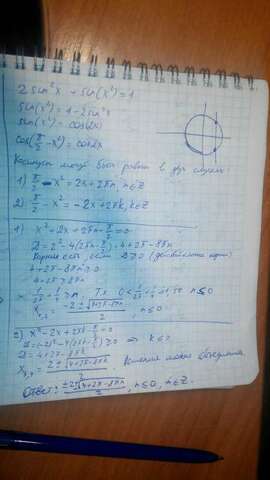 2 sin²x + sin(x²) = 1
sin(x²) = 1 - 2sin²x
sin(x²) = cos(2x)
cos(π/2 - x²) = cos2x
Косинусы могут быть равны в двух случаях:
1) π/2 - x² = 2x + 2πn, n∈Z
2) π/2 - x² = -2x + 2πk, k∈Z
1) x² + 2x + 2πn - π/2 = 0
D = 2² - 4(2πn - π/2) = 4 + 2π - 8πn
Корни есть, если D ≥ 0 (действительные корни)
4 + 2π - 8πn ≥ 0
4 + 2π ≥ 8πn
n ≤ 0
x₁,₂ = (-2 ± √(4+2π-8πn))/2, n ≤ 0
2) x² - 2x + 2πk - π/2 = 0
D = (-2)² - 4(2πk - π/2) ≥ 0 ⇒ k ≤ 0
D = 4 + 2π - 8πk
x₃,₄ = (2 ± √(4+2π-8πk))/2
Решения можно объединить
Ответ: (±2 ± √(4+2π-8πn))/2, n ≤ 0, n∈Z.